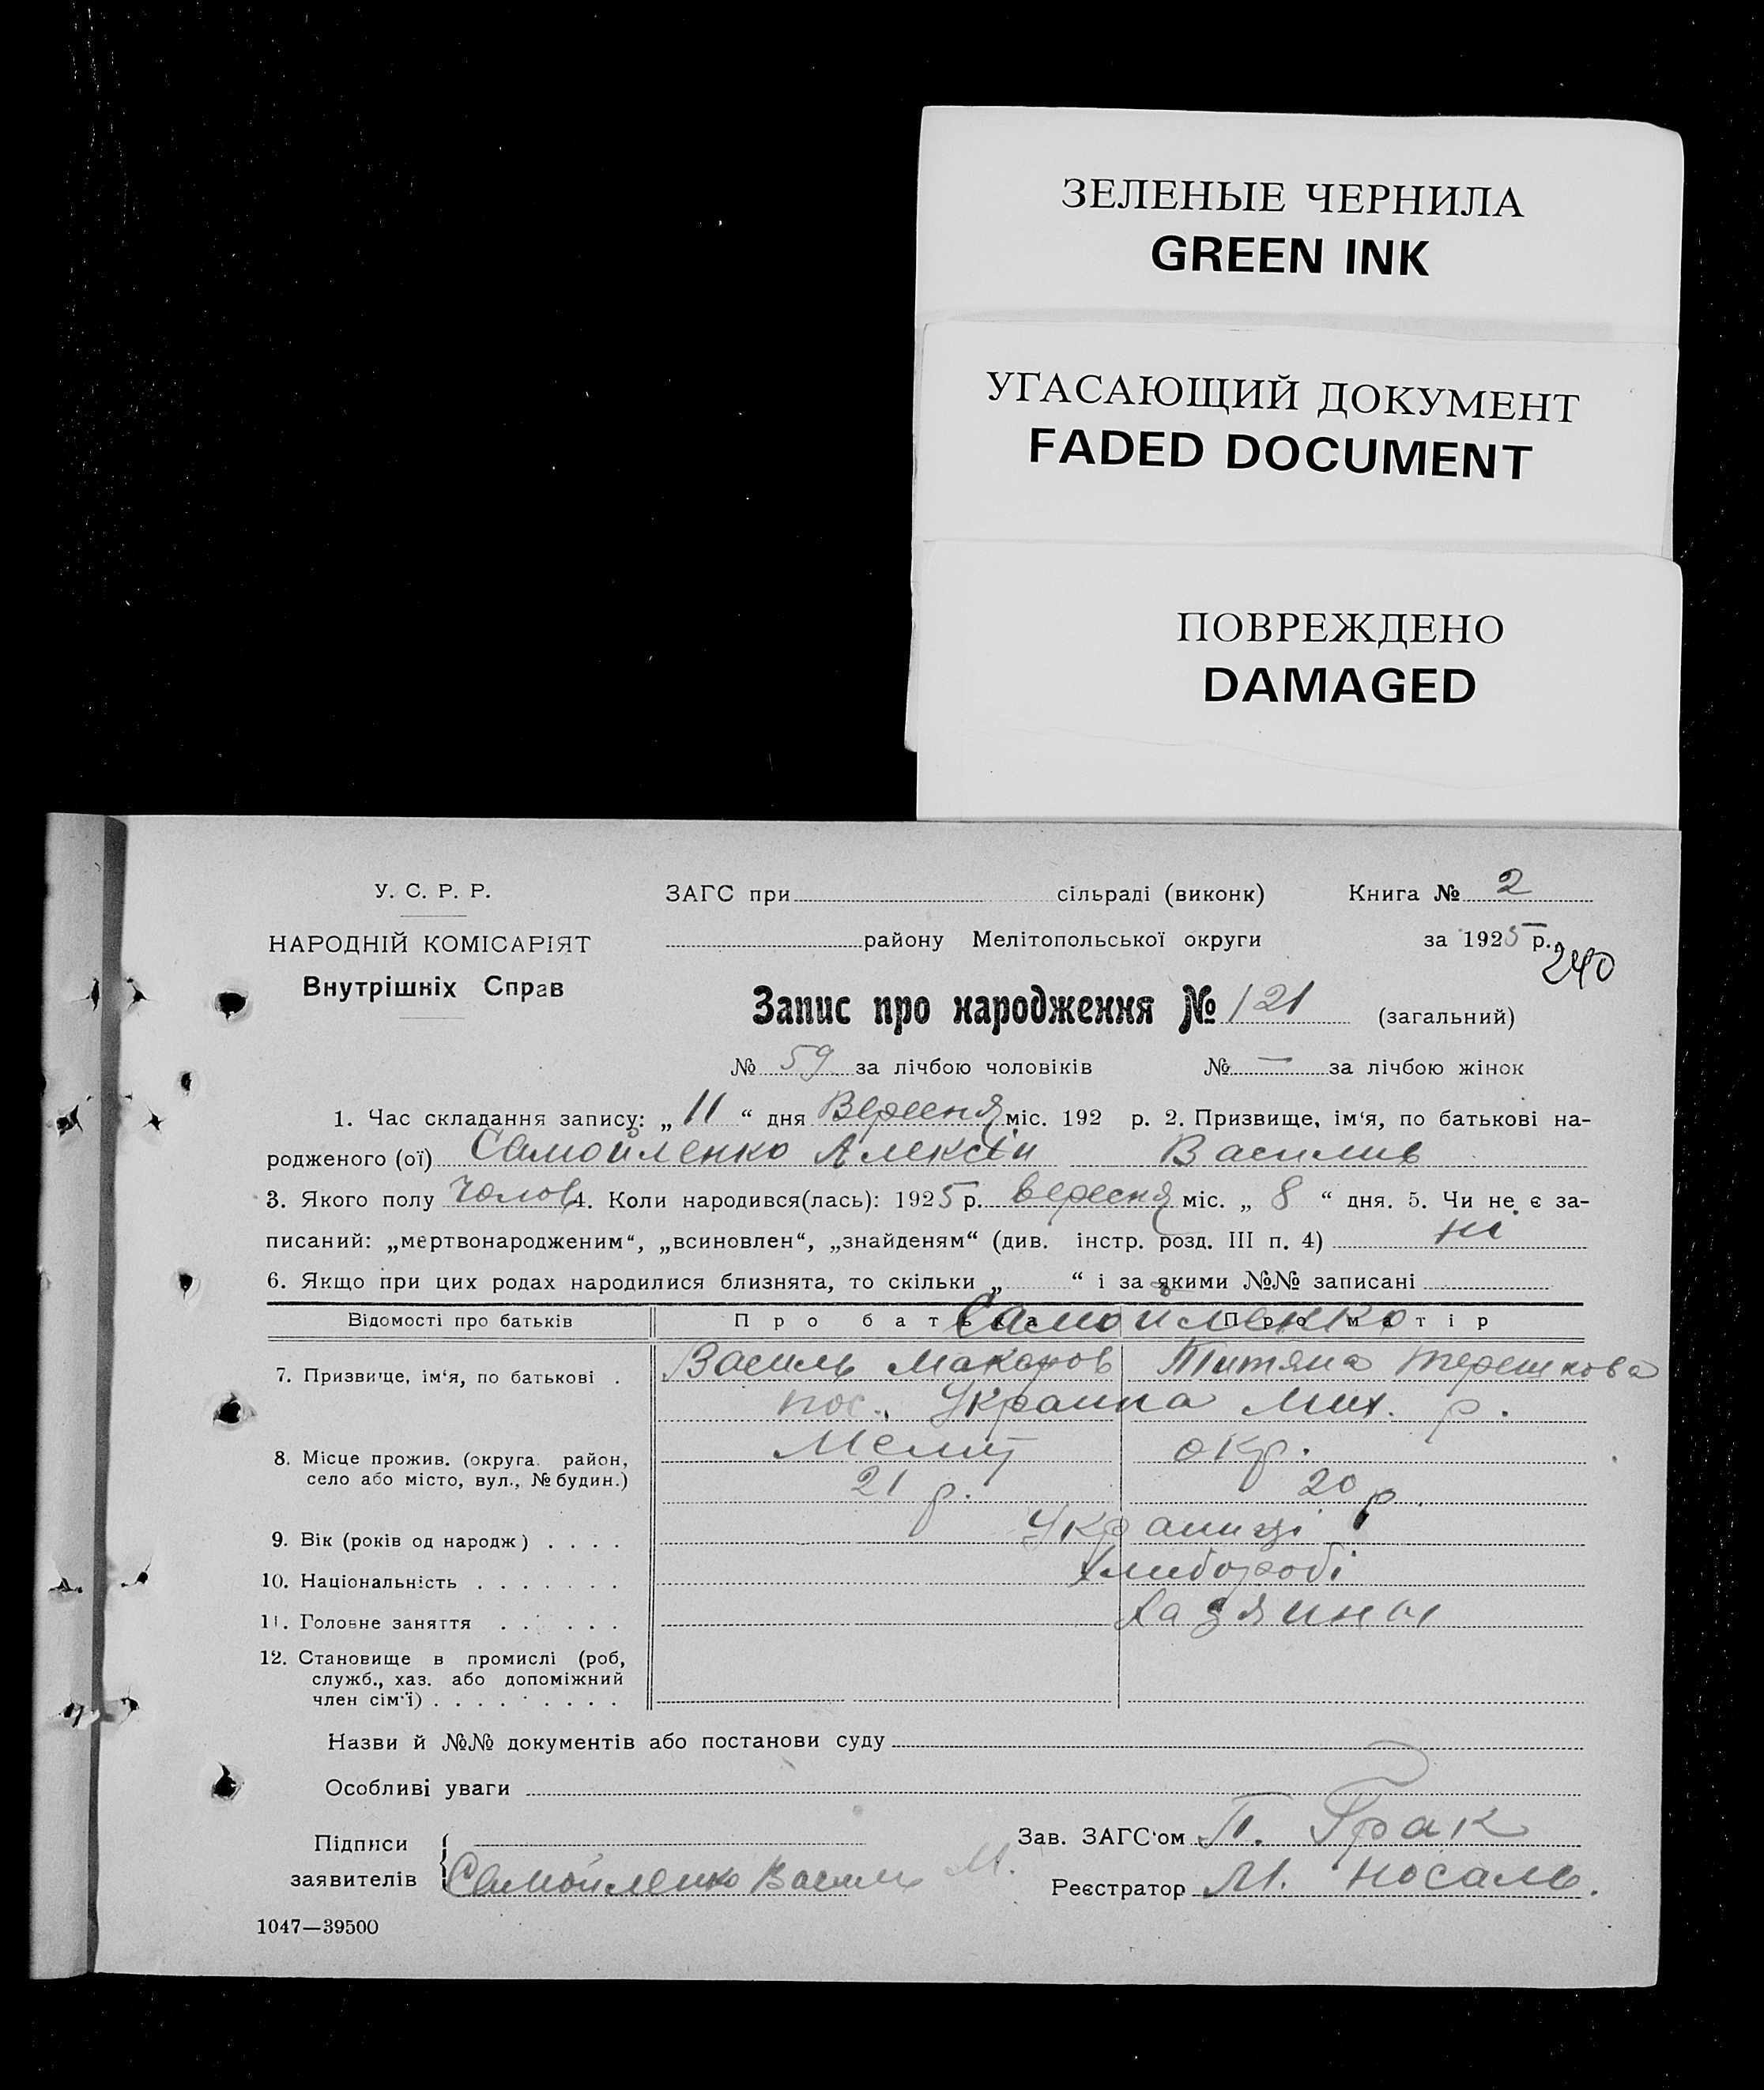 ЗЕЛЕНЫЕ ЧЕРНИЛА
GREEN INK
УГАСАЮЩИЙ ДОКУМЕНТ
FADED DOCUMENT
ПОВРЕЖДЕНО
DAMAGED
У. С. Р. Р.
НАРОДНІЙ КОМІСАРІЯТ
Внутрішніх Справ
ЗАГС при сільраді (виконк) Книга № 2
району Мелітопольської округи за 1925 р.
240
Запис про народження № 121 (загальний)
№ 59 за лічбою чоловіків № — за лічбою жінок
1. Час складання запису: „ 11 “ дня Вересня міс. 192 р. 2. Призвище, ім‘я, по батькові на-
родженого (ої) Самойленко Алексій Василив
3. Якого полу Чолов 4. Коли народився(лась): 1925 р. вересня міс. „ 8 “ дня. 5. Чи не є за-
писаний: „мертвонародженим“, „всиновлен“, „знайденям“ (див. інстр. розд. III п. 4) ні
6. Якщо при цих родах народилися близнята, то скільки „ “ і за якими №№ записані
Відомості про батьків Про батька Про матір
Самойленко
7. Призвище, ім‘я, по батькові . Василь Макаров Титяна Терешкова
пос. Украина Мих. р.
8. Місце прожив. (округа район, Меліт окр.
село або місто, вул., № будин.)
21 р. 20 р.
9. Вік (років од народж) . . . . Украинці
10. Національність . . . . . . . Хлибороби
11. Головне заняття . . . . . . Хазяины
12. Становище в промислі (роб,
служб., хаз. або допоміжний
член сім‘ї) . . . . . . . . .
Назви й №№ документів або постанови суду
Особливі уваги
Підписи
заявителів Самойленко Василь М.
Зав. ЗАГС‘ом П. Грак
Реєстратор М. Носаль.
1047—39500